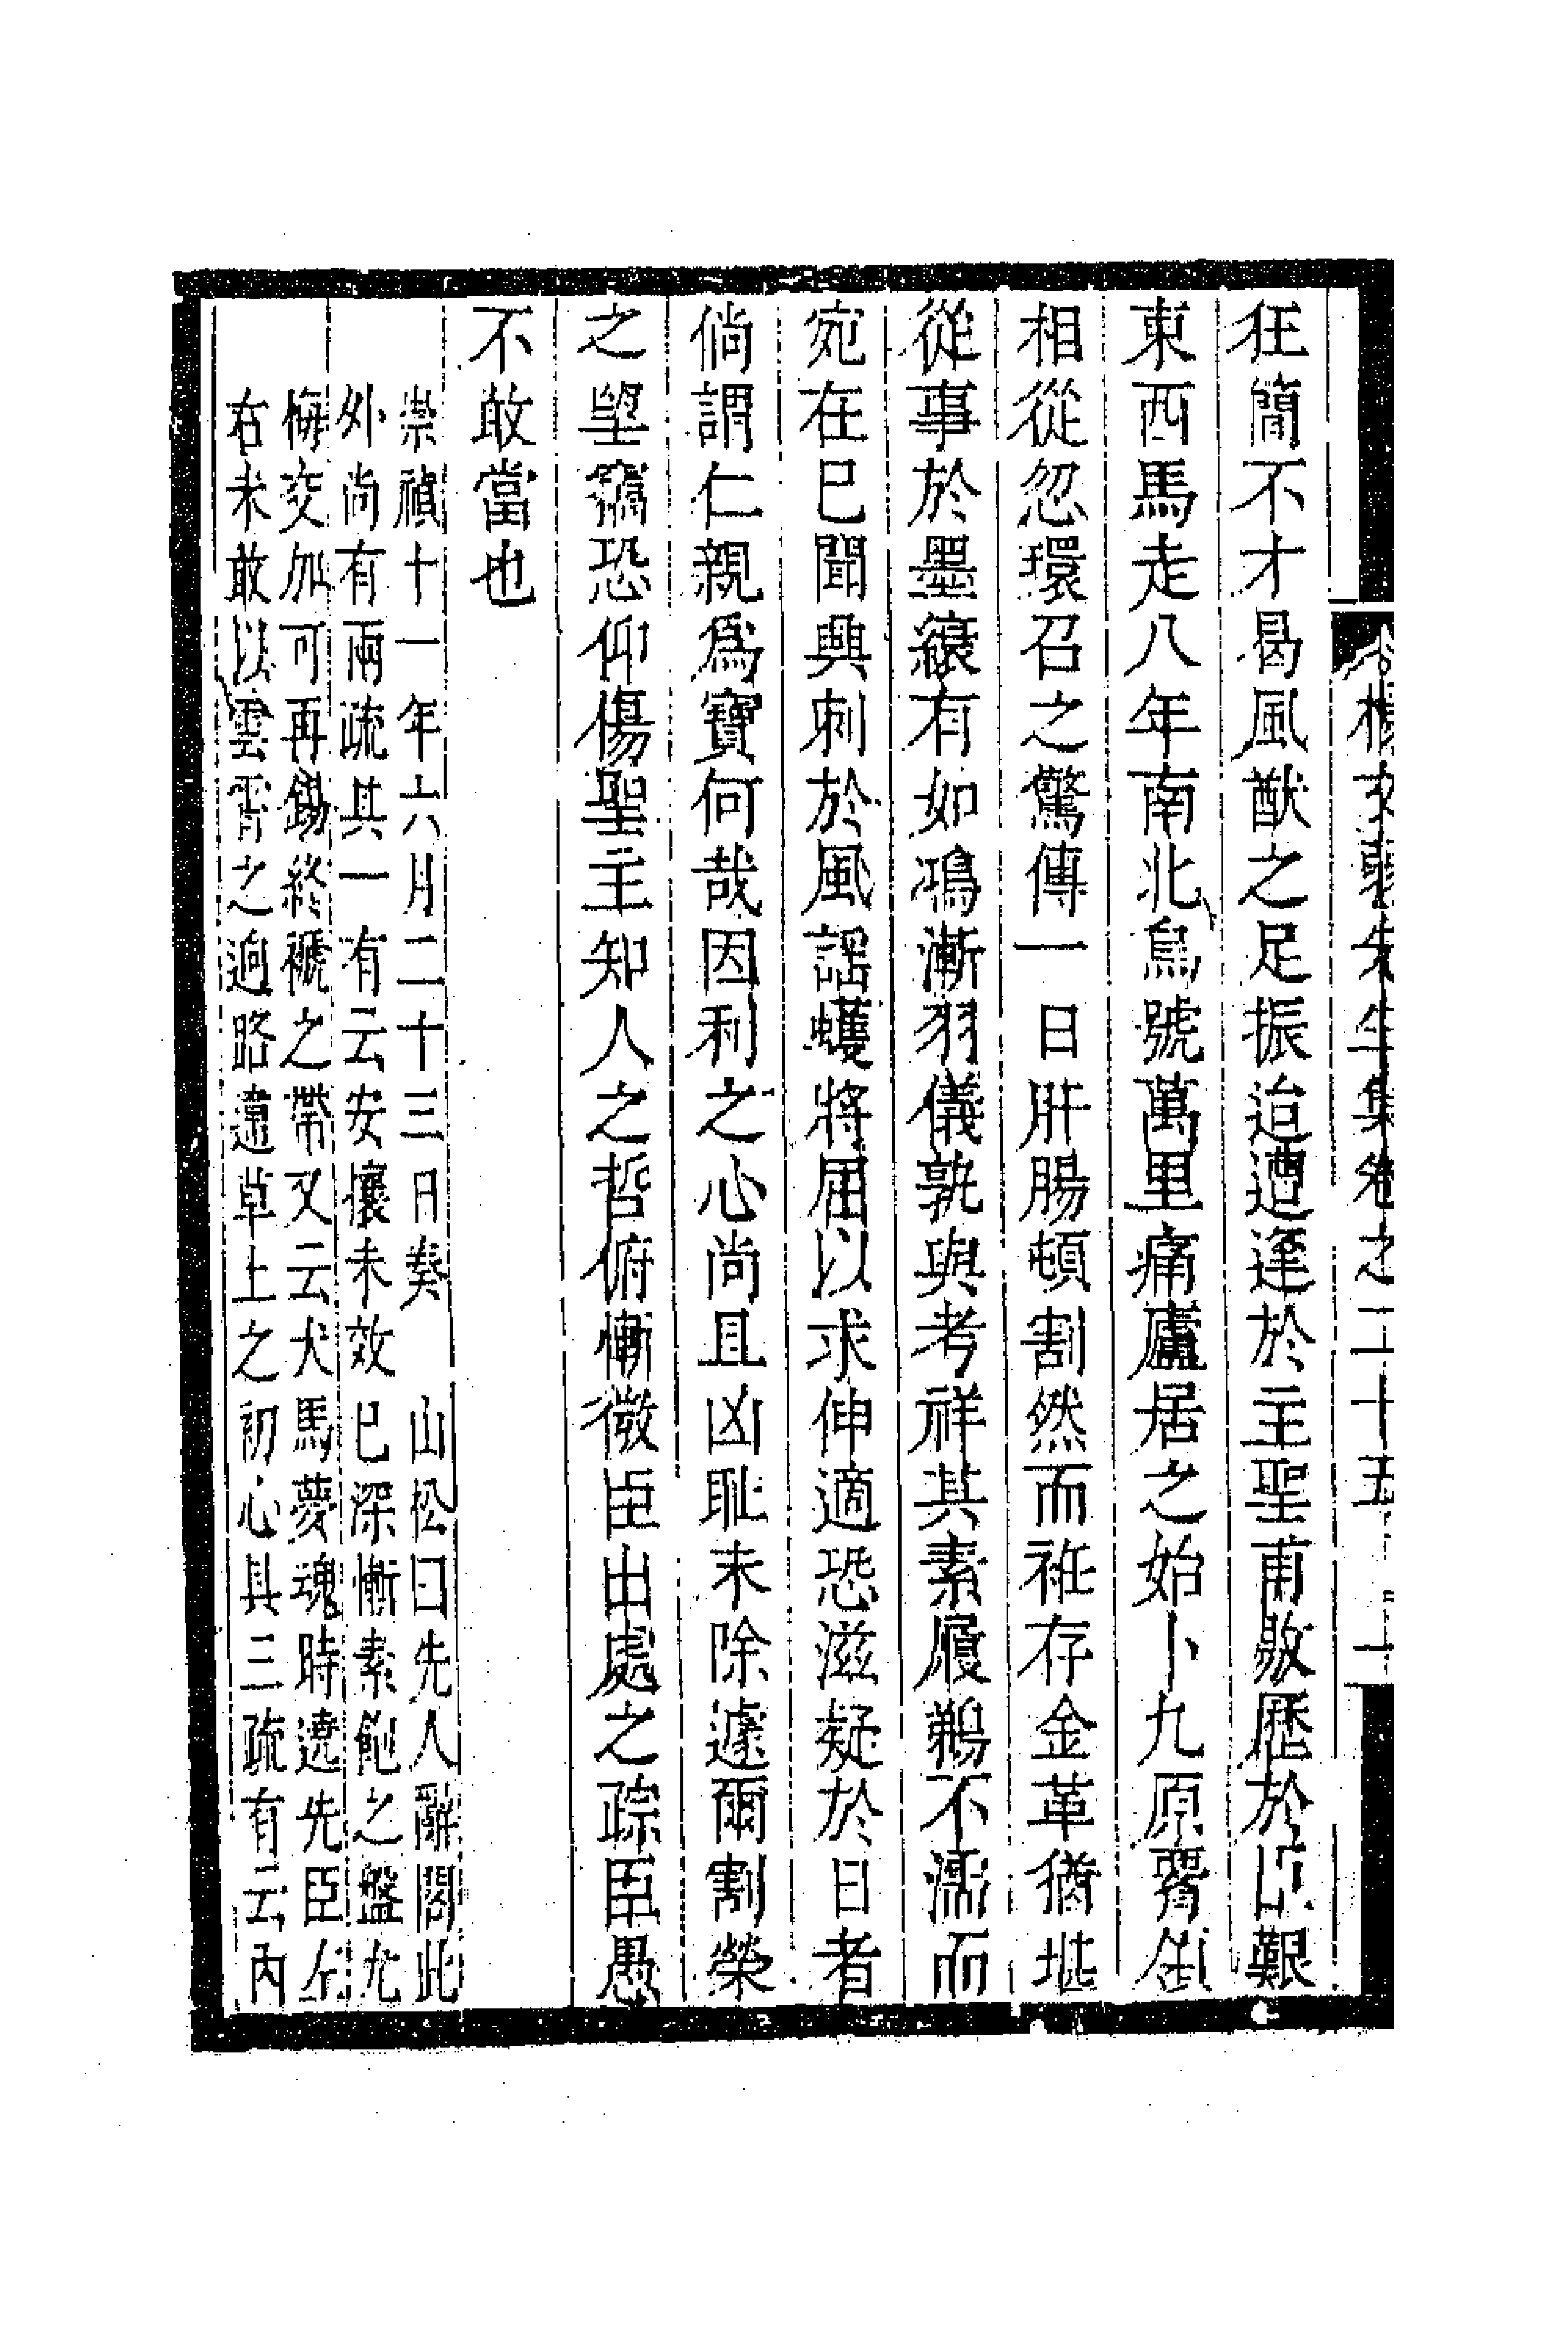 楊文弱先生集卷之二十五 一
狂簡不才曷風猷之足振迨遭逢於主聖甫敭歷於時艱
東西馬走八年南北烏號萬里痛廬居之始卜九原胥銜
相從忽環召之驚傳一日肝腸頓割然而袵存金革猶堪
從事於墨縗有如鴻漸羽儀孰與考祥其素履鵜不濡而
宛在已聞興刺於風謠蠖將屈以求伸適恐滋疑於日者
倘謂仁親爲寶何哉因利之心尚且凶耻未除遽爾割榮
之望竊恐仰傷聖主知人之哲俯慚微臣出處之踪臣愚
不敢當也
崇禎十一年六月二十三日奏 山松曰先人辭閣此
外尚有兩疏其一有云安懷未效已深慚素飽之盤尤
悔交加可再錫終褫之帶又云犬馬夢魂時遶先臣左
右未敢以雲霄之逈路違草土之初心其三疏有云內